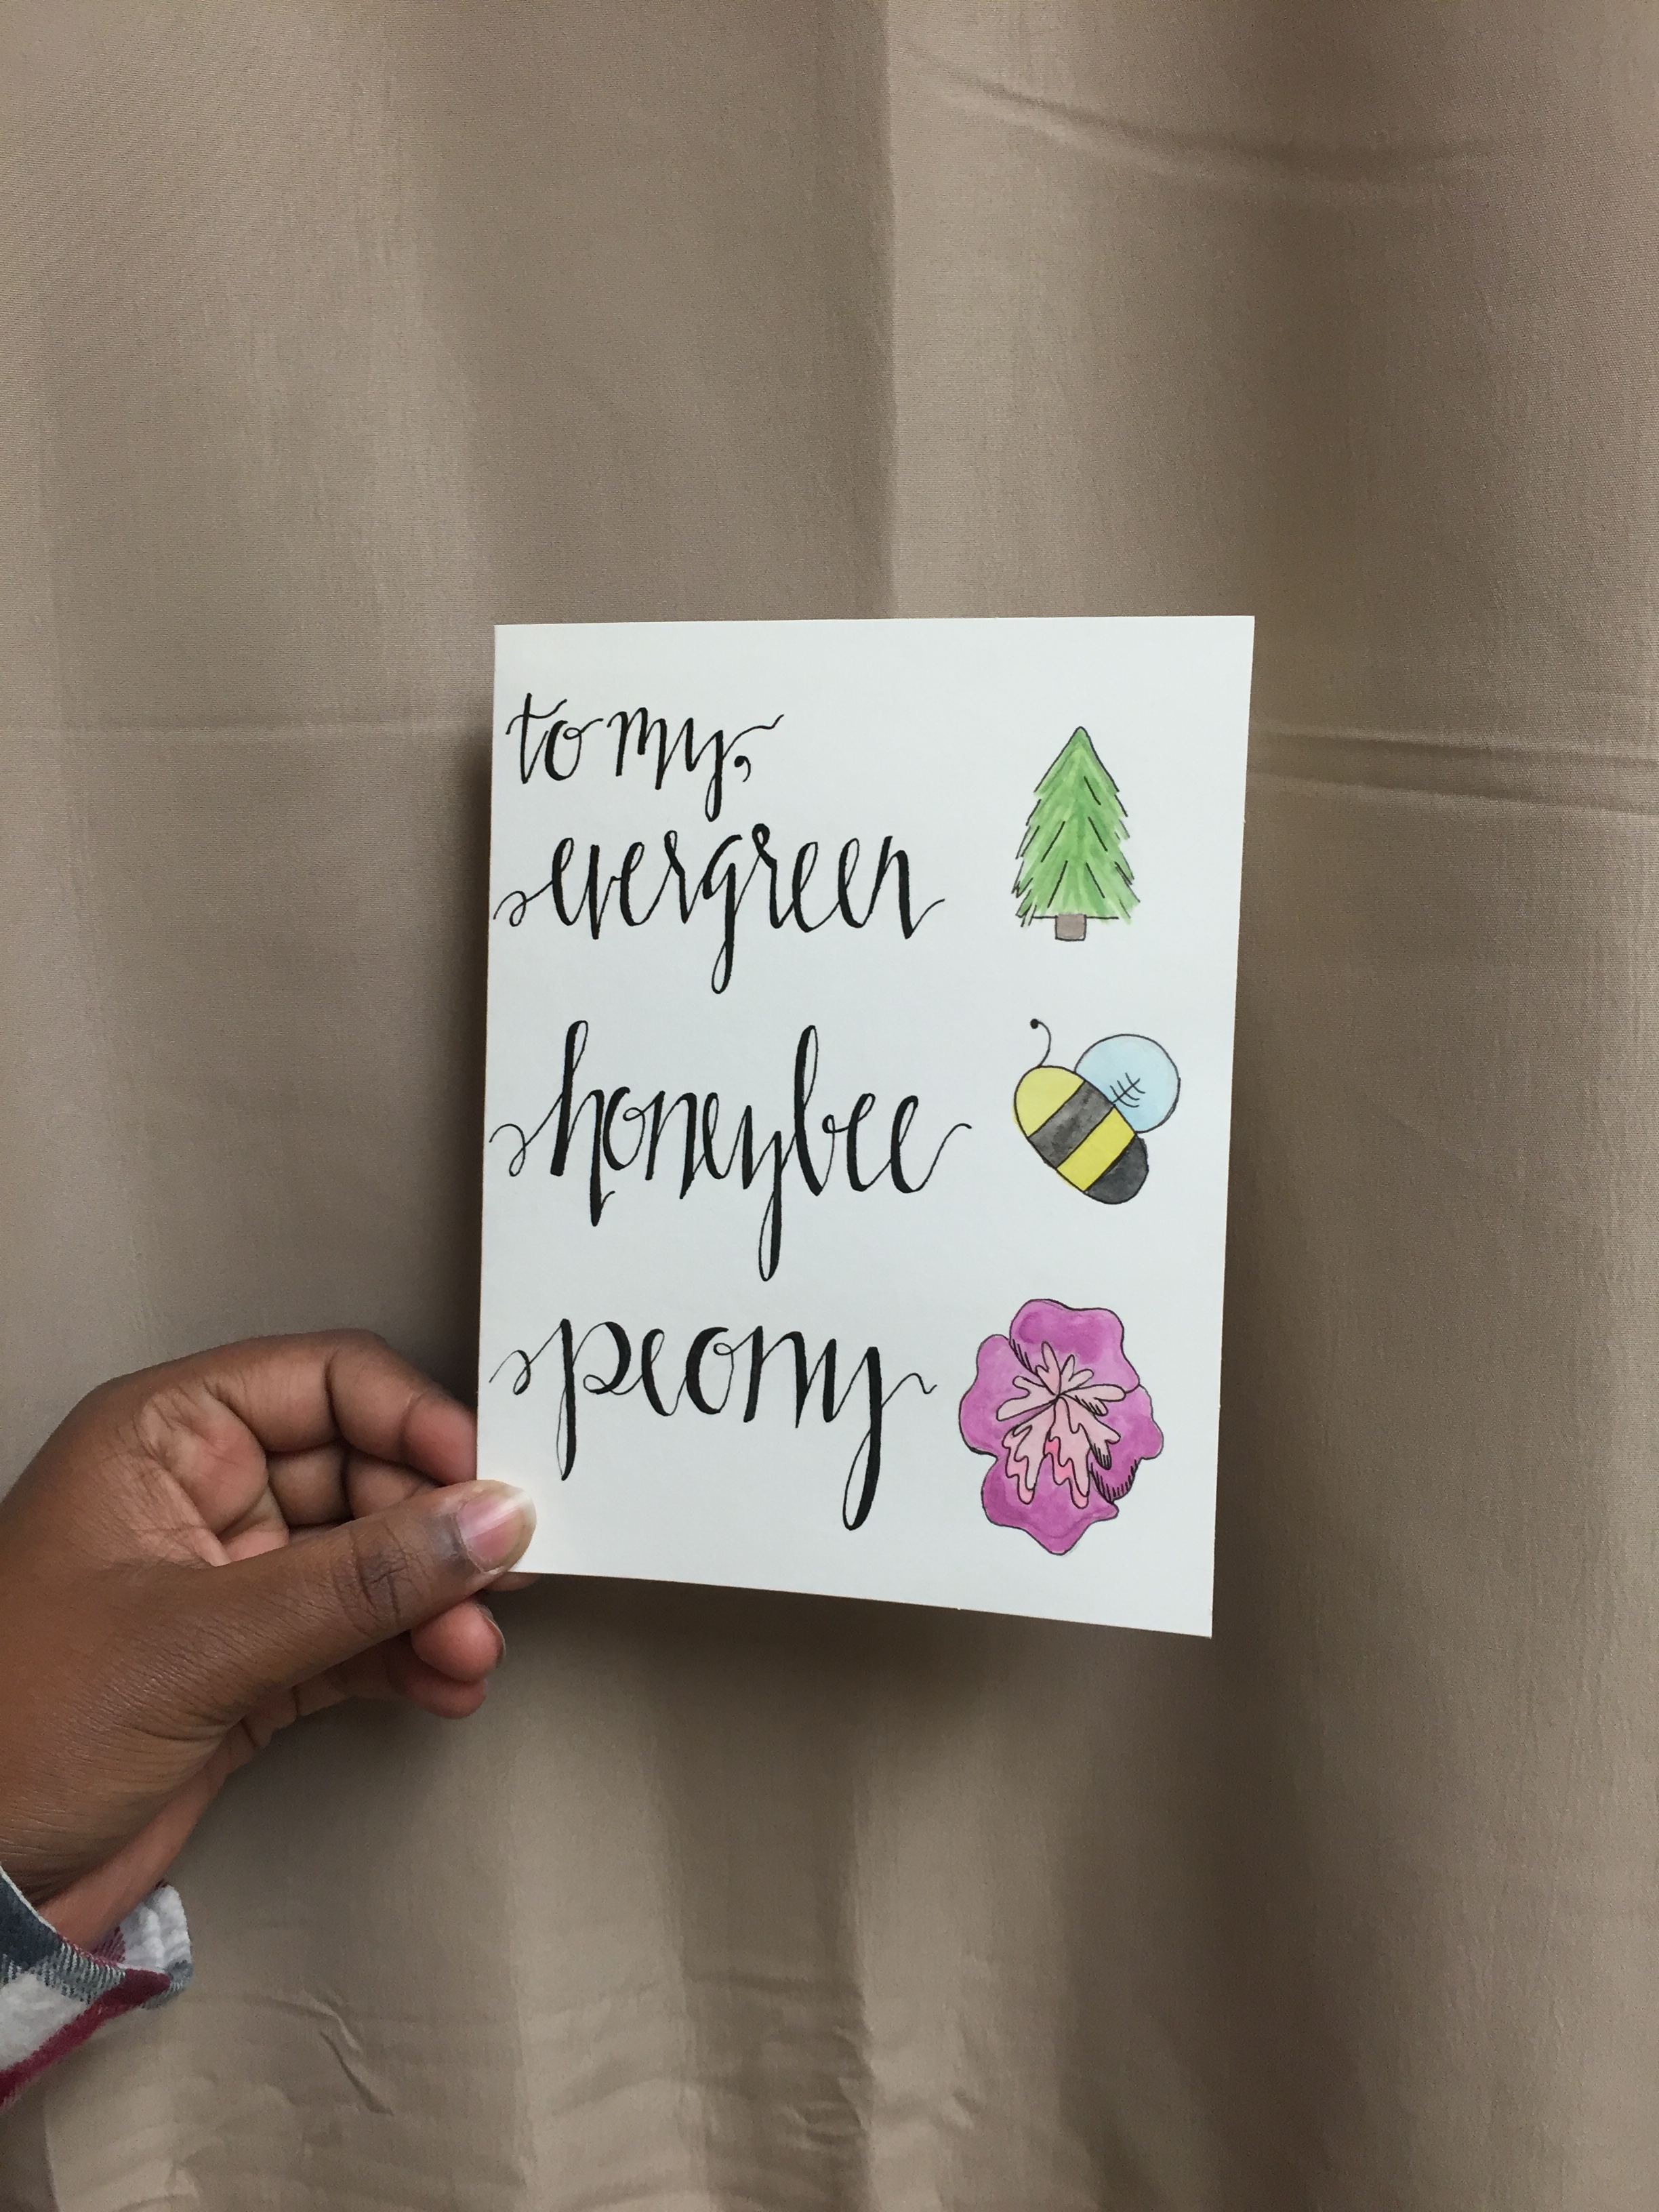 to my,
evergreen
honeybee
peony